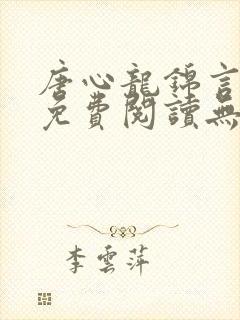 唐心龍錦言
免費閱讀無
李雲萍